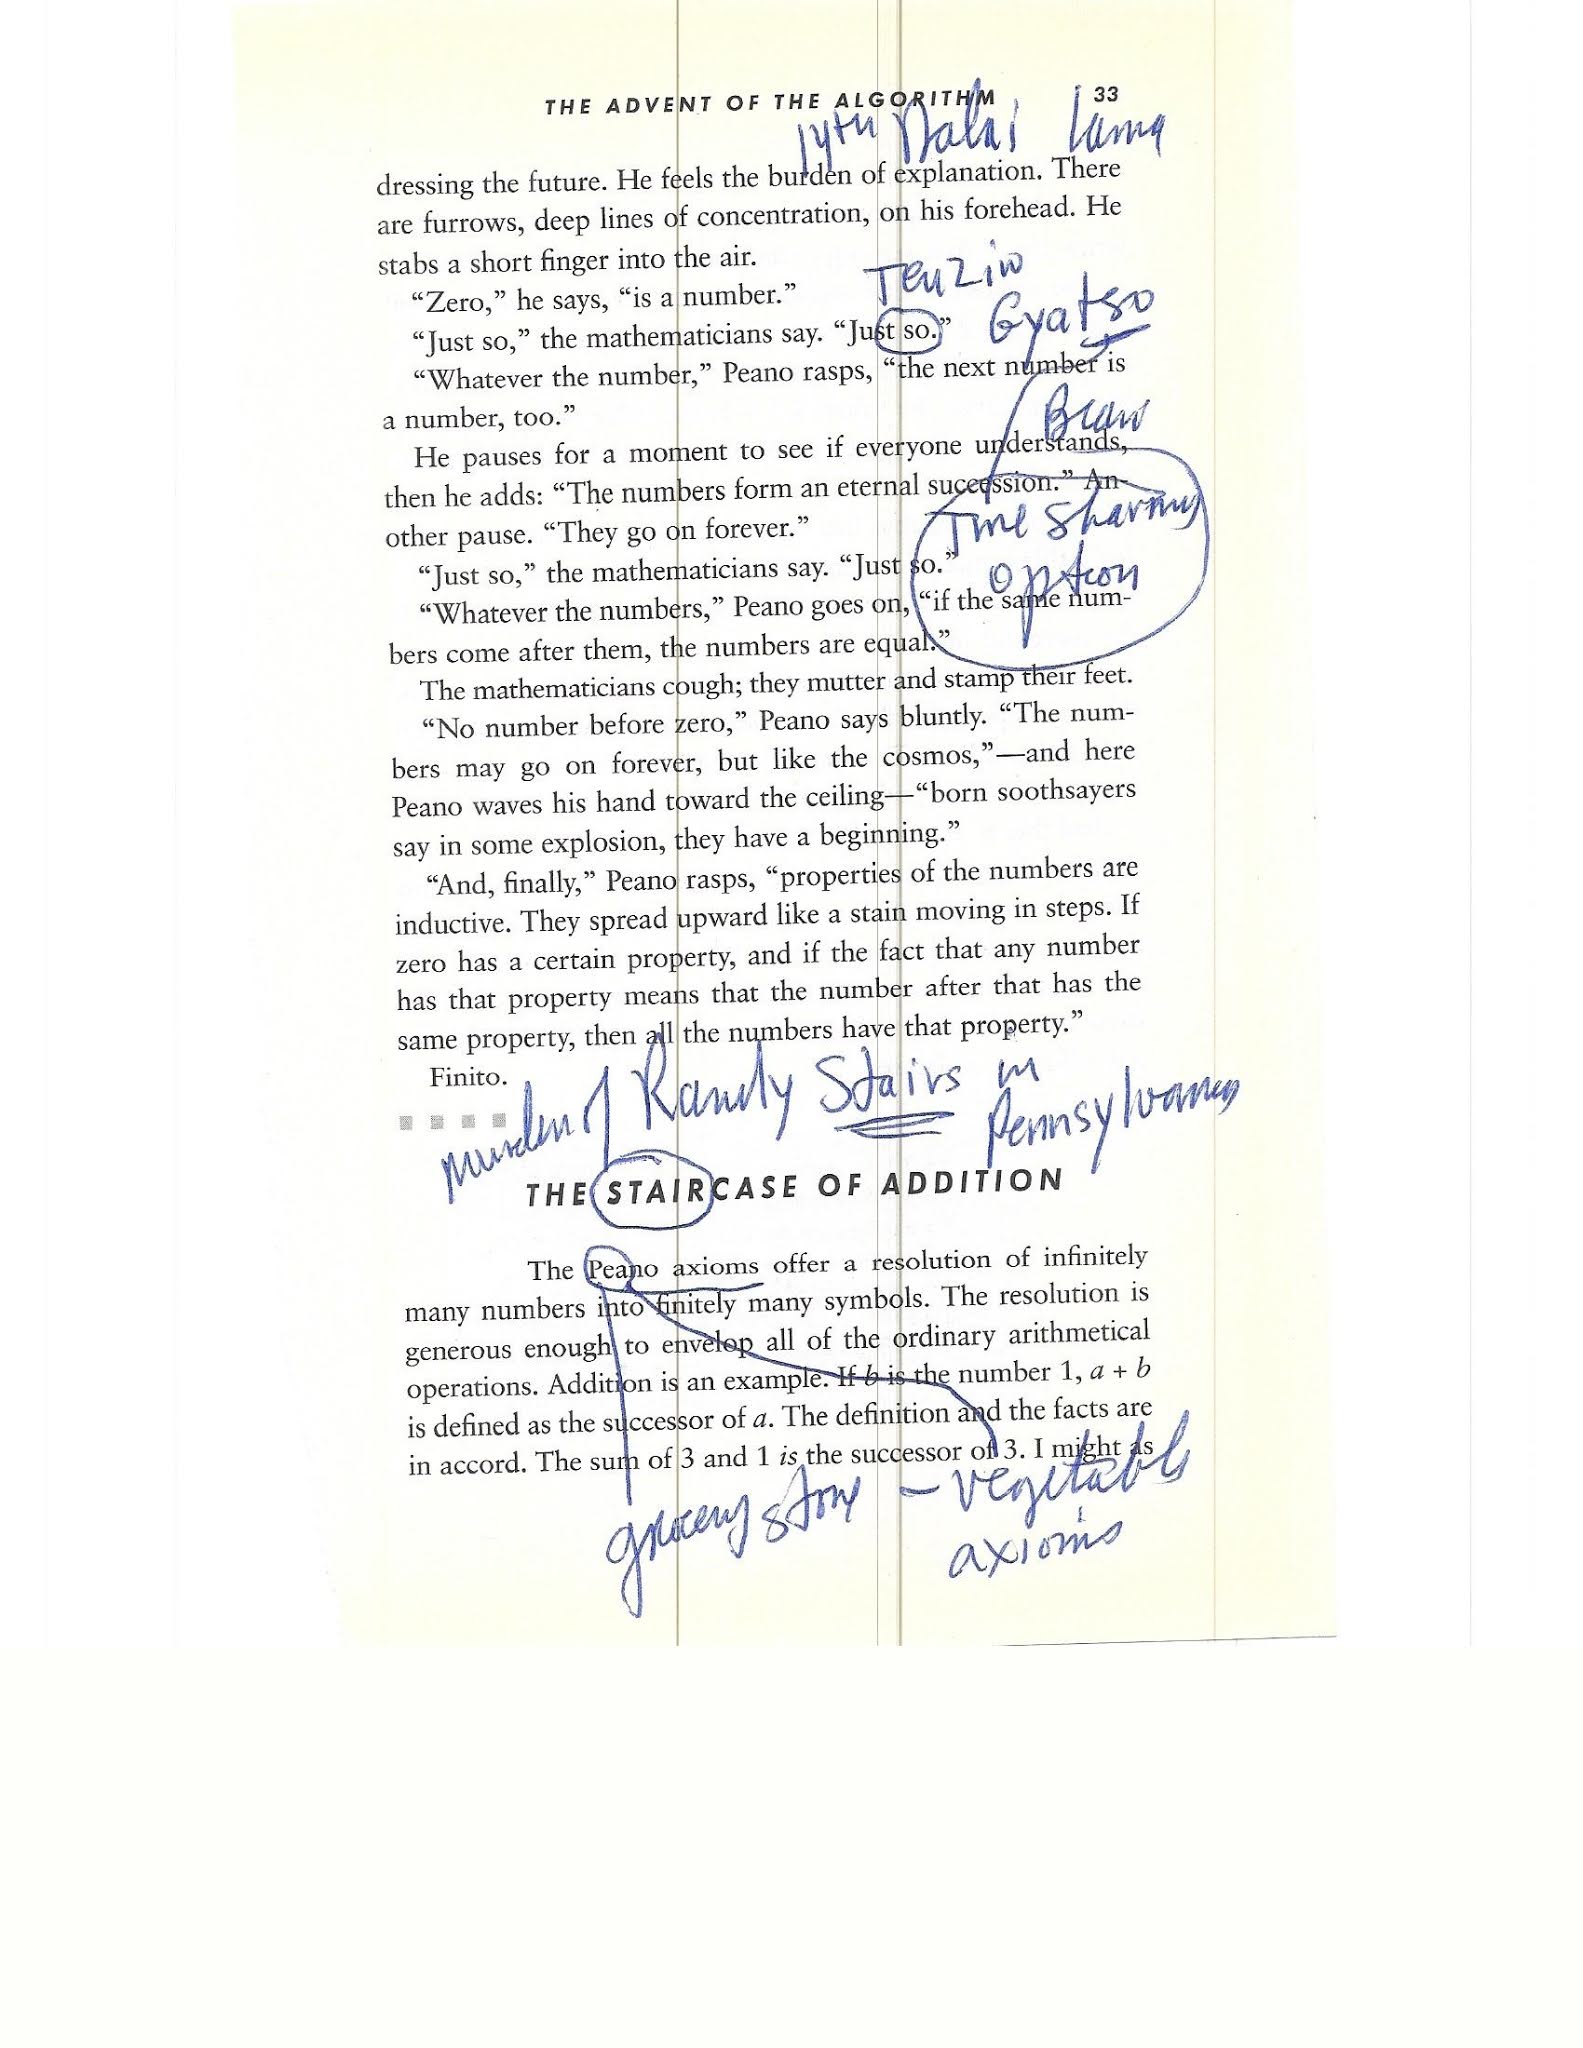 THE ADVENT OF THE ALGORITHM 33
14th Dalai Lama
dressing the future. He feels the burden of explanation. There
are furrows, deep lines of concentration, on his forehead. He
stabs a short finger into the air.
Tenzin
“Zero,” he says, “is a number.”
Gyatso
“Just so,” the mathematicians say. “Just so.”
“Whatever the number,” Peano rasps, “the next number is
a number, too.”
He pauses for a moment to see if everyone understands,
then he adds: “The numbers form an eternal succession.” An-
Time Sharing
other pause. “They go on forever.”
“Just so,” the mathematicians say. “Just so.”
option
“Whatever the numbers,” Peano goes on, “if the same num-
bers come after them, the numbers are equal.”
The mathematicians cough; they mutter and stamp their feet.
“No number before zero,” Peano says bluntly. “The num-
bers may go on forever, but like the cosmos,”—and here
Peano waves his hand toward the ceiling—“born soothsayers
say in some explosion, they have a beginning.”
“And, finally,” Peano rasps, “properties of the numbers are
inductive. They spread upward like a stain moving in steps. If
zero has a certain property, and if the fact that any number
has that property means that the number after that has the
same property, then all the numbers have that property.”
Finito.
murder of Randy Stairs in
Pennsylvania
THE STAIRCASE OF ADDITION
The Peano axioms offer a resolution of infinitely
many numbers into finitely many symbols. The resolution is
generous enough to envelop all of the ordinary arithmetical
operations. Addition is an example. If b is the number 1, a + b
is defined as the successor of a. The definition and the facts are
in accord. The sum of 3 and 1 is the successor of 3. I might as
grocery store – vegetable
axioms